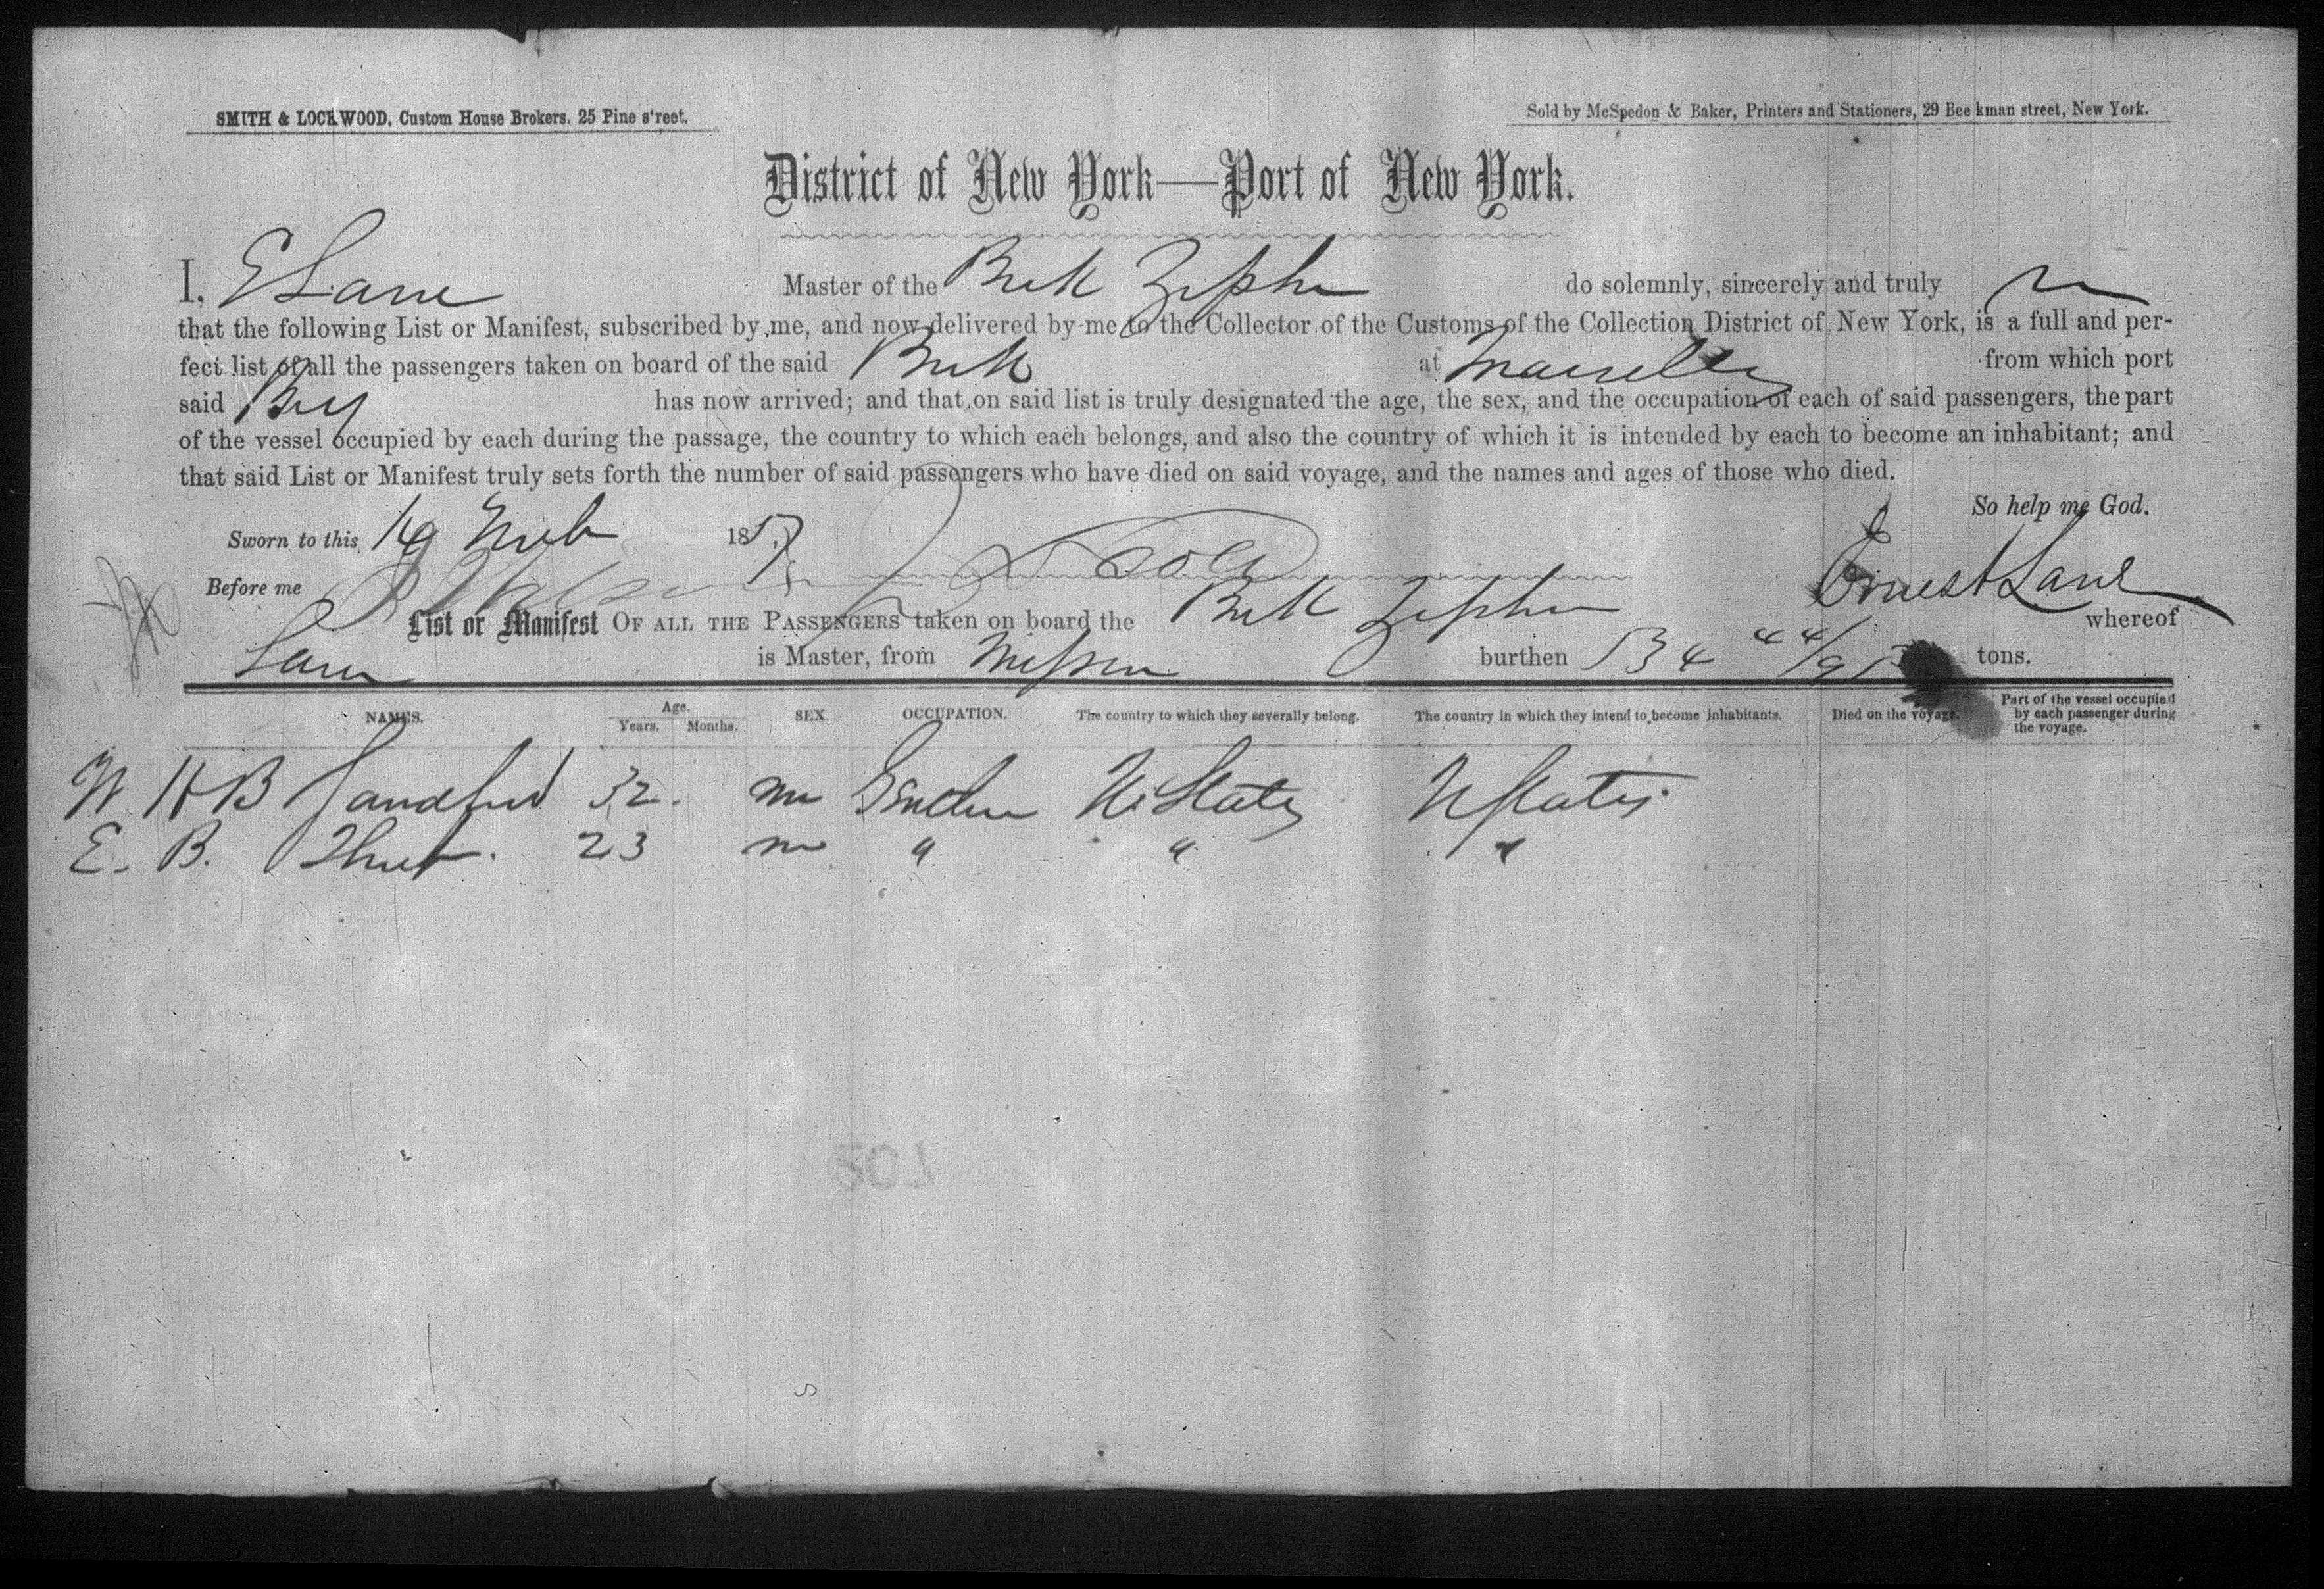 SMITH & LOCKWOOD, Custom House Brokers, 25 Pine street.
Sold by McSpedon & Baker, Printers and Stationers, 29 Beekman street, New York.
District of New York—Port of New York.
I, E Lane Master of the Zephr do solemnly, sincerely and truly
that the following List or Manifest, subscribed by me, and now delivered by me to the Collector of the Customs of the Collection District of New York, is a full and per-
fect list of all the passengers taken on board of the said at Marseilles from which port
said has now arrived; and that on said list is truly designated the age, the sex, and the occupation of each of said passengers, the part
of the vessel occupied by each during the passage, the country to which each belongs, and also the country of which it is intended by each to become an inhabitant; and
that said List or Manifest truly sets forth the number of said passengers who have died on said voyage, and the names and ages of those who died.
So help me God.
Sworn to this 19 1857
Before me Ernest Lane
List or Manifest OF ALL THE PASSENGERS taken on board the Zephr whereof
Lane is Master, from burthen 534 44/95 tons.
NAMES. Age. Years. Months. SEX. OCCUPATION. The country to which they severally belong. The country in which they intend to become inhabitants. Died on the voyage. Part of the vessel occupied by each passenger during the voyage.
W H B Sandford 32. m U States U States
E. B. 23 m " " "